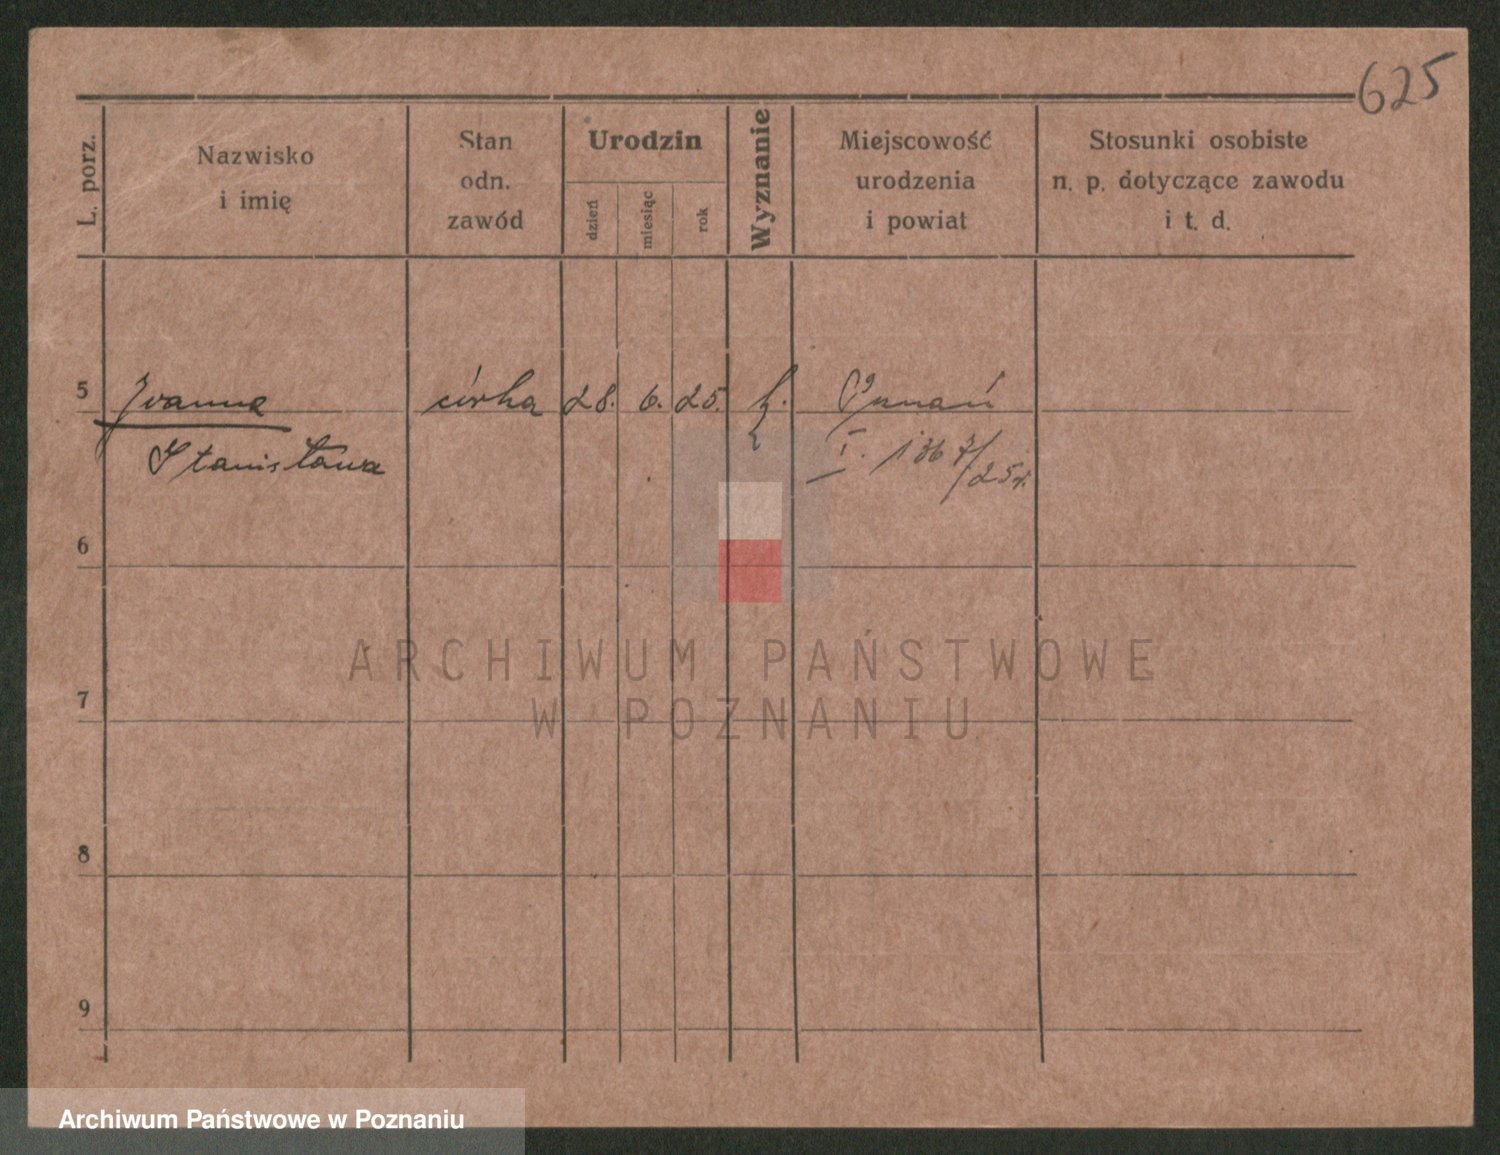 625
L. porz.
Nazwisko
i imię
Stan
odn.
zawód
Urodzin
dzień
miesiąc
rok
Wyznanie
Miejscowość
urodzenia
i powiat
Stosunki osobiste
n. p. dotyczące zawodu
i t. d.
5 córka 28. 6. 25. k. Poznań
Stanisława I. 1367/25r.
6
7
8
9
ARCHIWUM PAŃSTWOWE
W POZNANIU
Archiwum Państwowe w Poznaniu